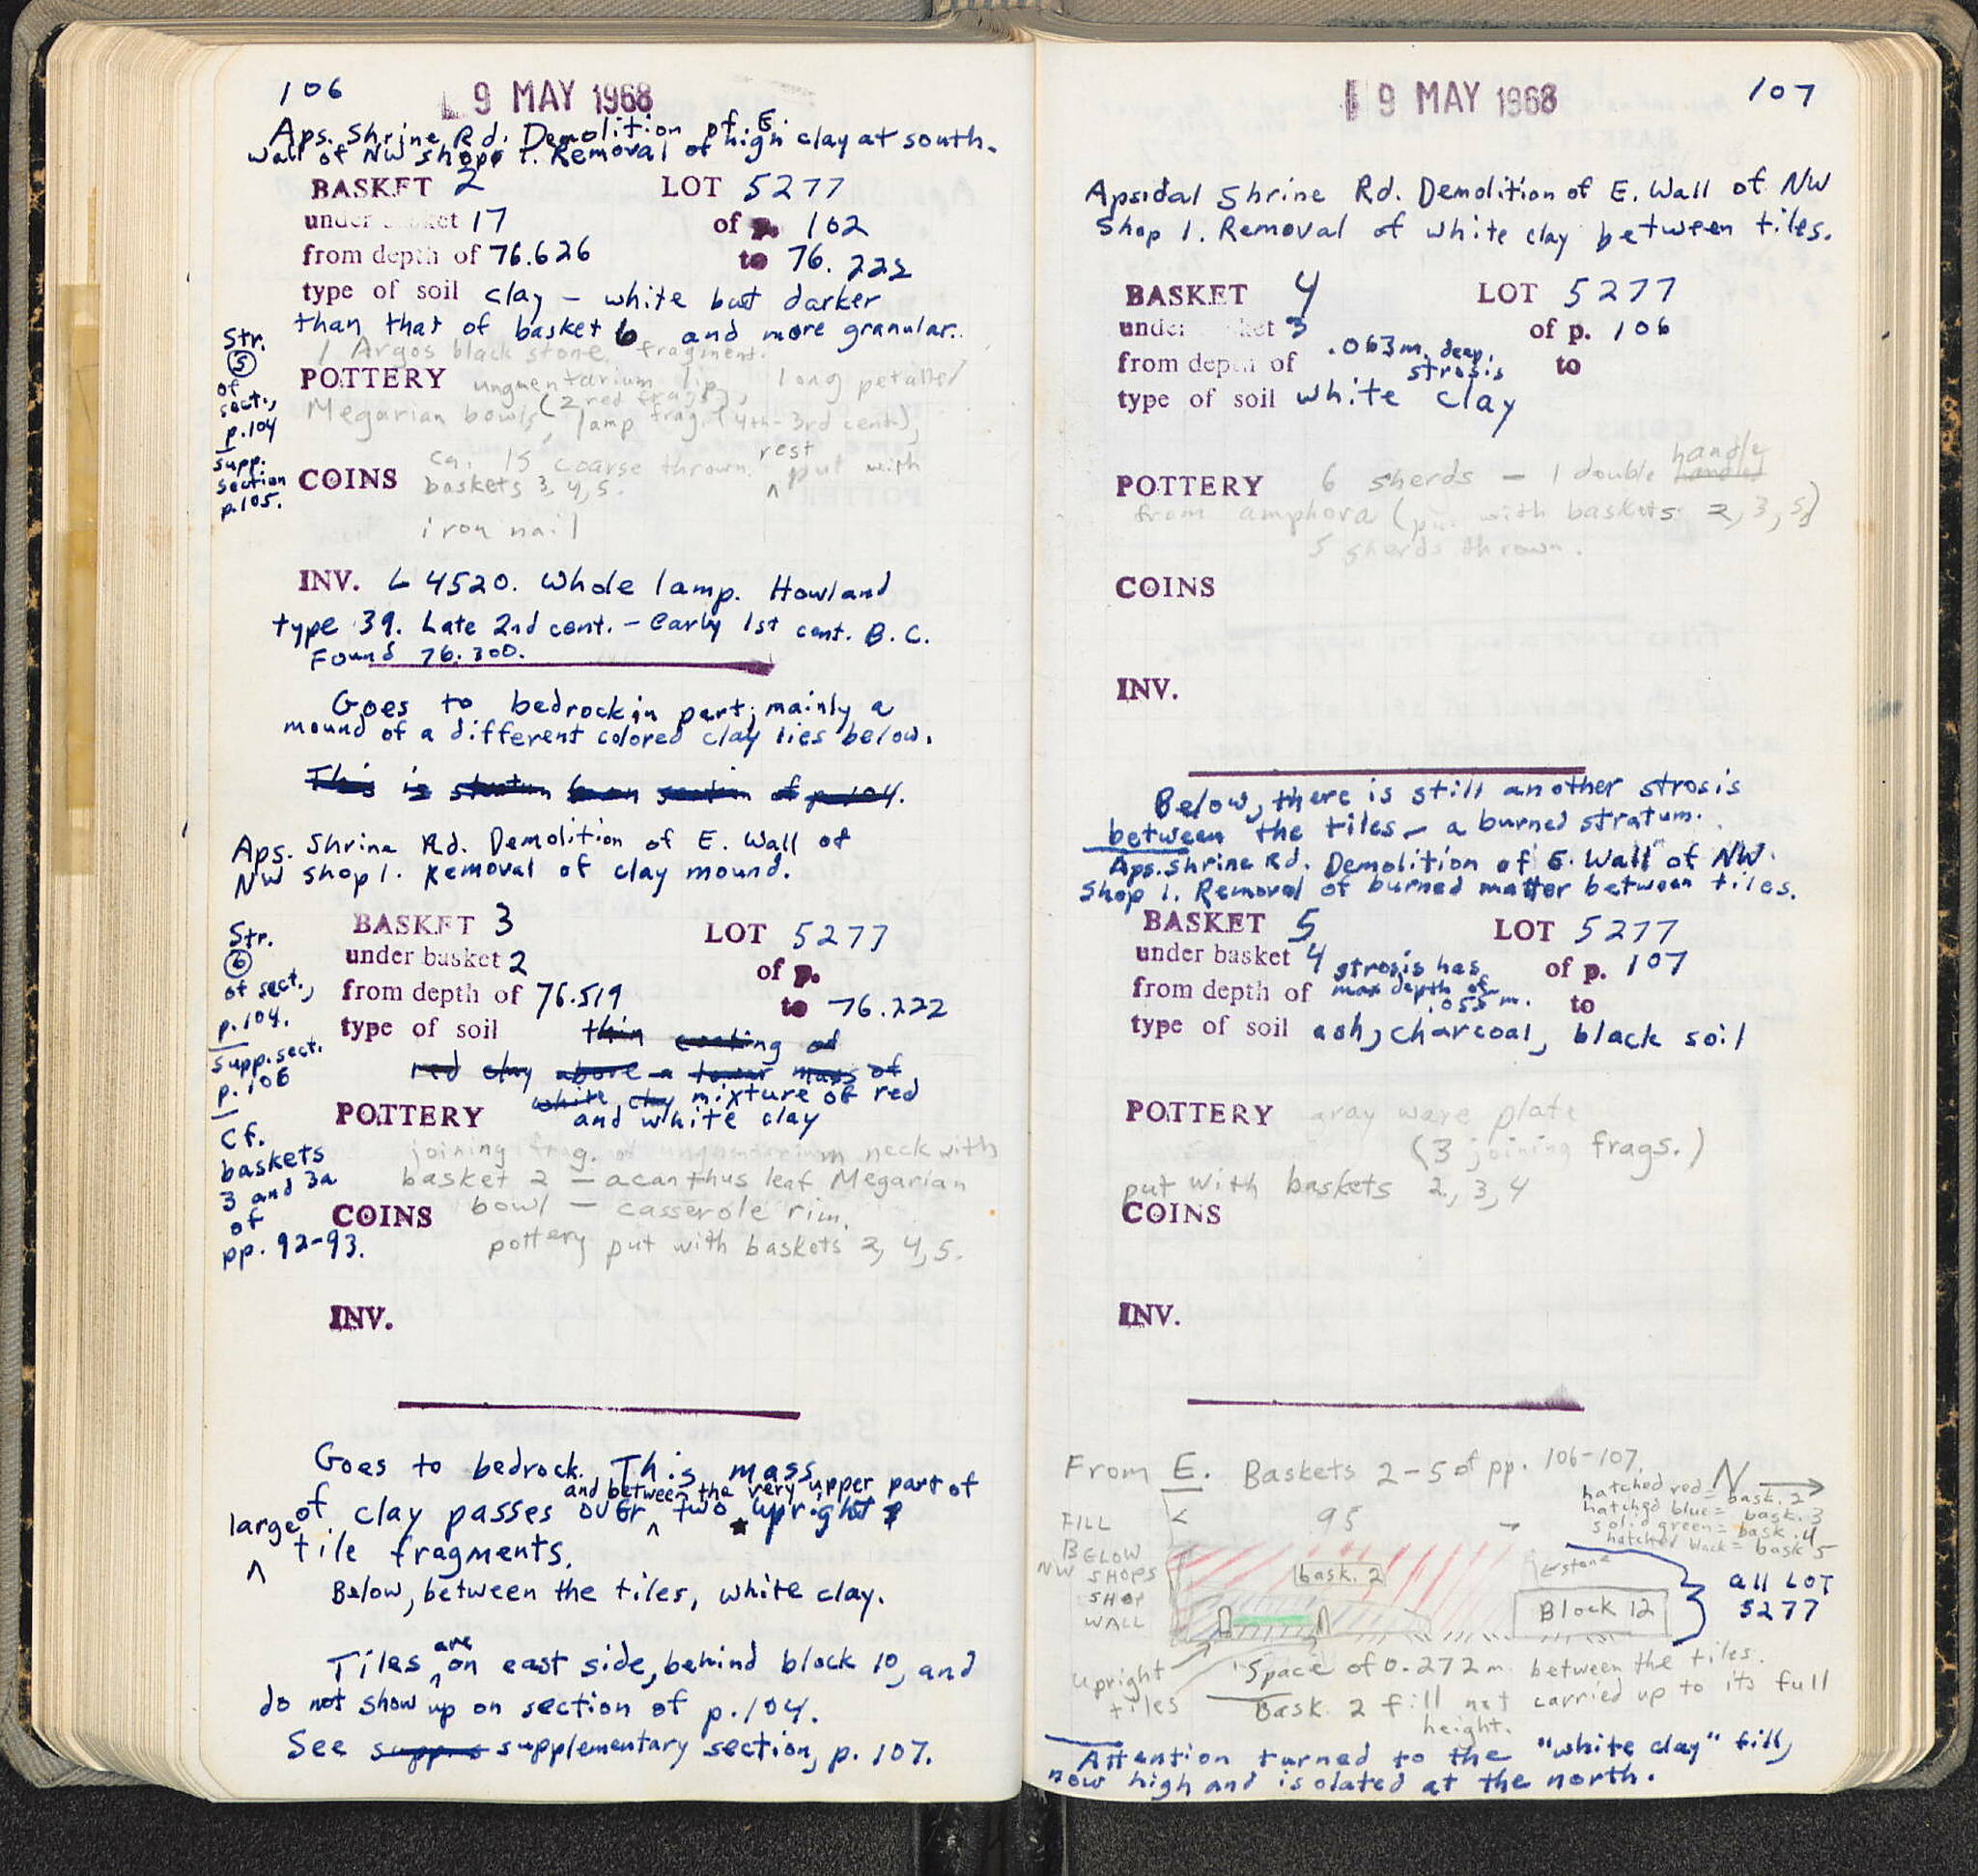 106
9 MAY 1968
Aps. Shrine Rd. Demolition of E.
wall of NW shop 1. Removal of high clay at south.
BASKET 2 LOT 5277
under basket 17 of p. 102
from depth of 76.626 to 76.222
type of soil clay – white but darker
than that of basket 6 and more granular.
Str.
5
of
sect.,
p.104
supp.
section
p.105.
1 Argos black stone fragment.
POTTERY unguentarium lip, long petalled
Megarian bowls (2 red frags), lamp frag. (4th-3rd cent),
ca. 15 coarse thrown. rest put with
COINS baskets 3, 4, 5.
iron nail
INV. L 4520. Whole lamp. Howland
type 39. Late 2nd cent. – early 1st cent. B.C.
Found 76.300.
Goes to bedrock in part; mainly a
mound of a different colored clay lies below.
This is section of p.104.
Aps. Shrine Rd. Demolition of E. Wall of
NW Shop 1. Removal of clay mound.
BASKET 3 LOT 5277
under basket 2 of p.
from depth of 76.519 to 76.222
type of soil thin coating of
red clay above a lower mass of
white clay mixture of red
POTTERY and white clay
Str.
6
of sect.,
p.104.
supp. sect.
p. 106
Cf.
baskets
3 and 3a
of
pp. 92-93.
joining frag. of unguentarium neck with
basket 2 – acanthus leaf Megarian
COINS bowl – casserole rim.
pottery put with baskets 2, 4, 5.
INV.
Goes to bedrock. This mass
and between the very upper part of
of clay passes over ^ two upright
large ^ tile fragments.
Below, between the tiles, white clay.
Tiles are ^ on east side, behind block 10, and
do not show up on section of p.104.
See supplementary section, p. 107.
9 MAY 1968
107
Apsidal Shrine Rd. Demolition of E. Wall of NW
Shop 1. Removal of white clay between tiles.
BASKET 4 LOT 5277
under basket 3 of p. 106
from depth of .063 m. deep. strosis to
type of soil white clay
POTTERY 6 sherds – 1 double handled handle
from amphora (put with baskets 2, 3, 5)
5 sherds thrown.
COINS
INV.
Below, there is still another strosis
between the tiles – a burned stratum.
Aps. Shrine Rd. Demolition of E. Wall of NW.
Shop 1. Removal of burned matter between tiles.
BASKET 5 LOT 5277
under basket 4 of p. 107
from depth of strosis has max depth of .055 m. to
type of soil ash, charcoal, black soil
POTTERY gray ware plate
(3 joining frags.)
put with baskets 2, 3, 4
COINS
INV.
From E. Baskets 2-5 of pp. 106-107.
N
hatched red = bask. 2
hatched blue = bask. 3
solid green = bask. 4
hatched black = bask 5
FILL
BELOW
NW SHOPS
SHOP
WALL
95
bask. 2
stone
Block 12
all LOT
5277
Upright
tiles
Space of 0.272m between the tiles.
Bask. 2 fill not carried up to its full
height.
Attention turned to the "white clay" fill,
now high and isolated at the north.